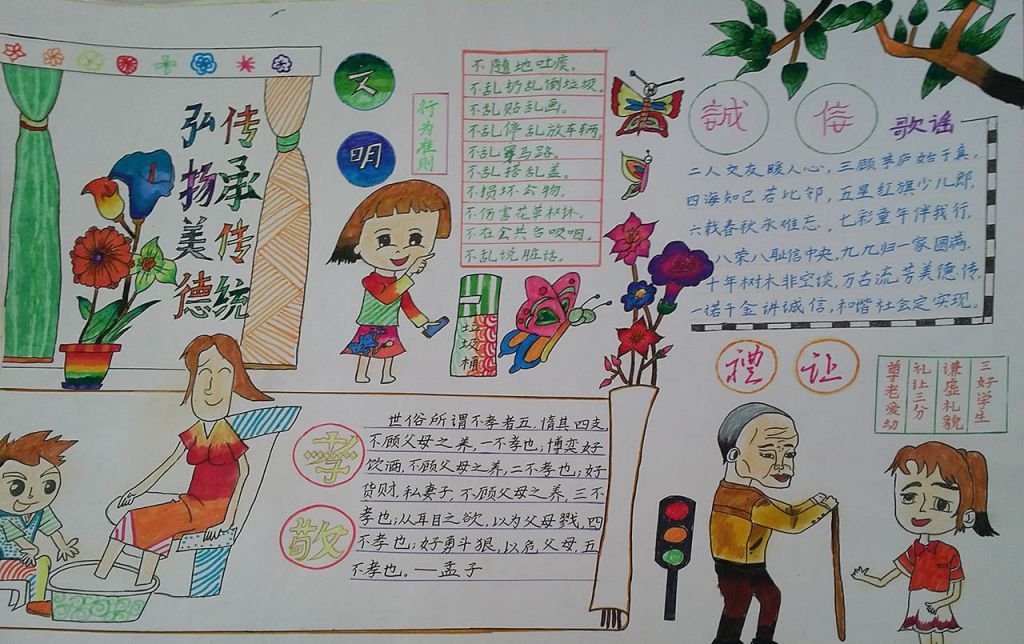 弘扬美德
传承传统
文明
行为准则
不随地吐痰。
不乱扔乱倒垃圾。
不乱贴乱画。
不乱停乱放车辆
不乱穿马路。
不乱搭乱盖。
不损坏公物。
不伤害花草树林。
不在公共场吸咽。
不乱说脏话。
垃圾桶
誠信
歌谣
二人交友暖人心，三顾茅庐始于真，
四海知己若比邻，五星红旗少儿郎，
六载春秋永难忘，七彩童年伴我行，
八荣八耻信中央，九九归一家圆满，
十年树木非空谈，万古流芳美德传，
一诺千金讲诚信，和谐社会定实现。
禮让
三好学生
谦虚礼貌
礼让三分
尊老爱幼
孝敬
世俗所谓不孝者五，惰其四支，
不顾父母之养，一不孝也；博奕好
饮酒，不顾父母之养，二不孝也；好
货财，私妻子，不顾父母之养，三不
孝也；从耳目之欲，以为父母戮，四
不孝也；好勇斗狠，以危父母，五
不孝也。——孟子